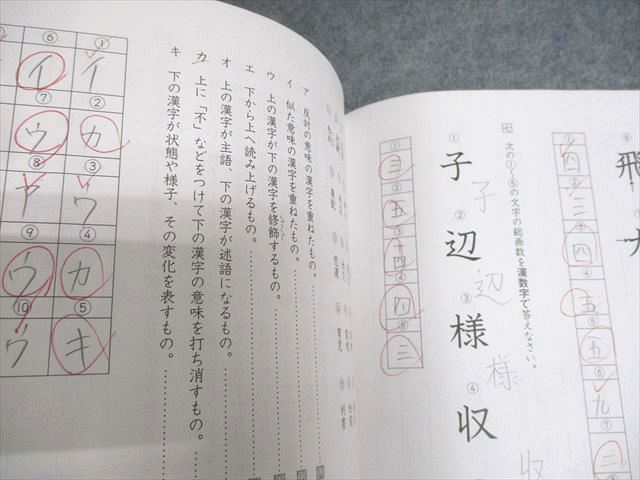 飛
①
四
②
三
四
五
五
九
⑦
三
次の①～⑤の文字の総画数を漢数字で答えなさい。
①
子
子
②
辺
辺
③
様
様
④
収
収
①
三
②
五
③
十四
④
四
⑤
三
ア 反対の意味の漢字を重ねたもの。
イ 似た意味の漢字を重ねたもの。
ウ 上の漢字が下の漢字を修飾するもの。
エ 下から上へ読み上げるもの。
オ 上の漢字が主語、下の漢字が述語になるもの。
カ 上に「不」などをつけて下の漢字の意味を打ち消すもの。
キ 下の漢字が状態や様子、その変化を表すもの。
①
イ
②
カ
③
ウ
④
カ
⑤
キ
⑥
イ
⑦
ウ
⑧
ア
⑨
ウ
⑩
ウ